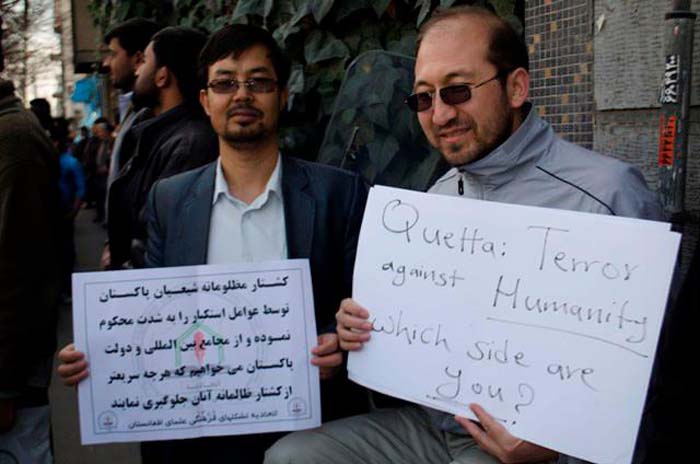 کشتار مظلومانه شیعیان پاکستان
توسط عوامل استکبار را به شدت محکوم
نموده و از مجامع بین المللی و دولت
پاکستان می خواهیم که هرچه سریعتر
از کشتار ظالمانه آنان جلوگیری نمایند
اتحادیه تشکلهای فرهنگی علمای افغانستان
Quetta: Terror
against Humanity
which side are
you?